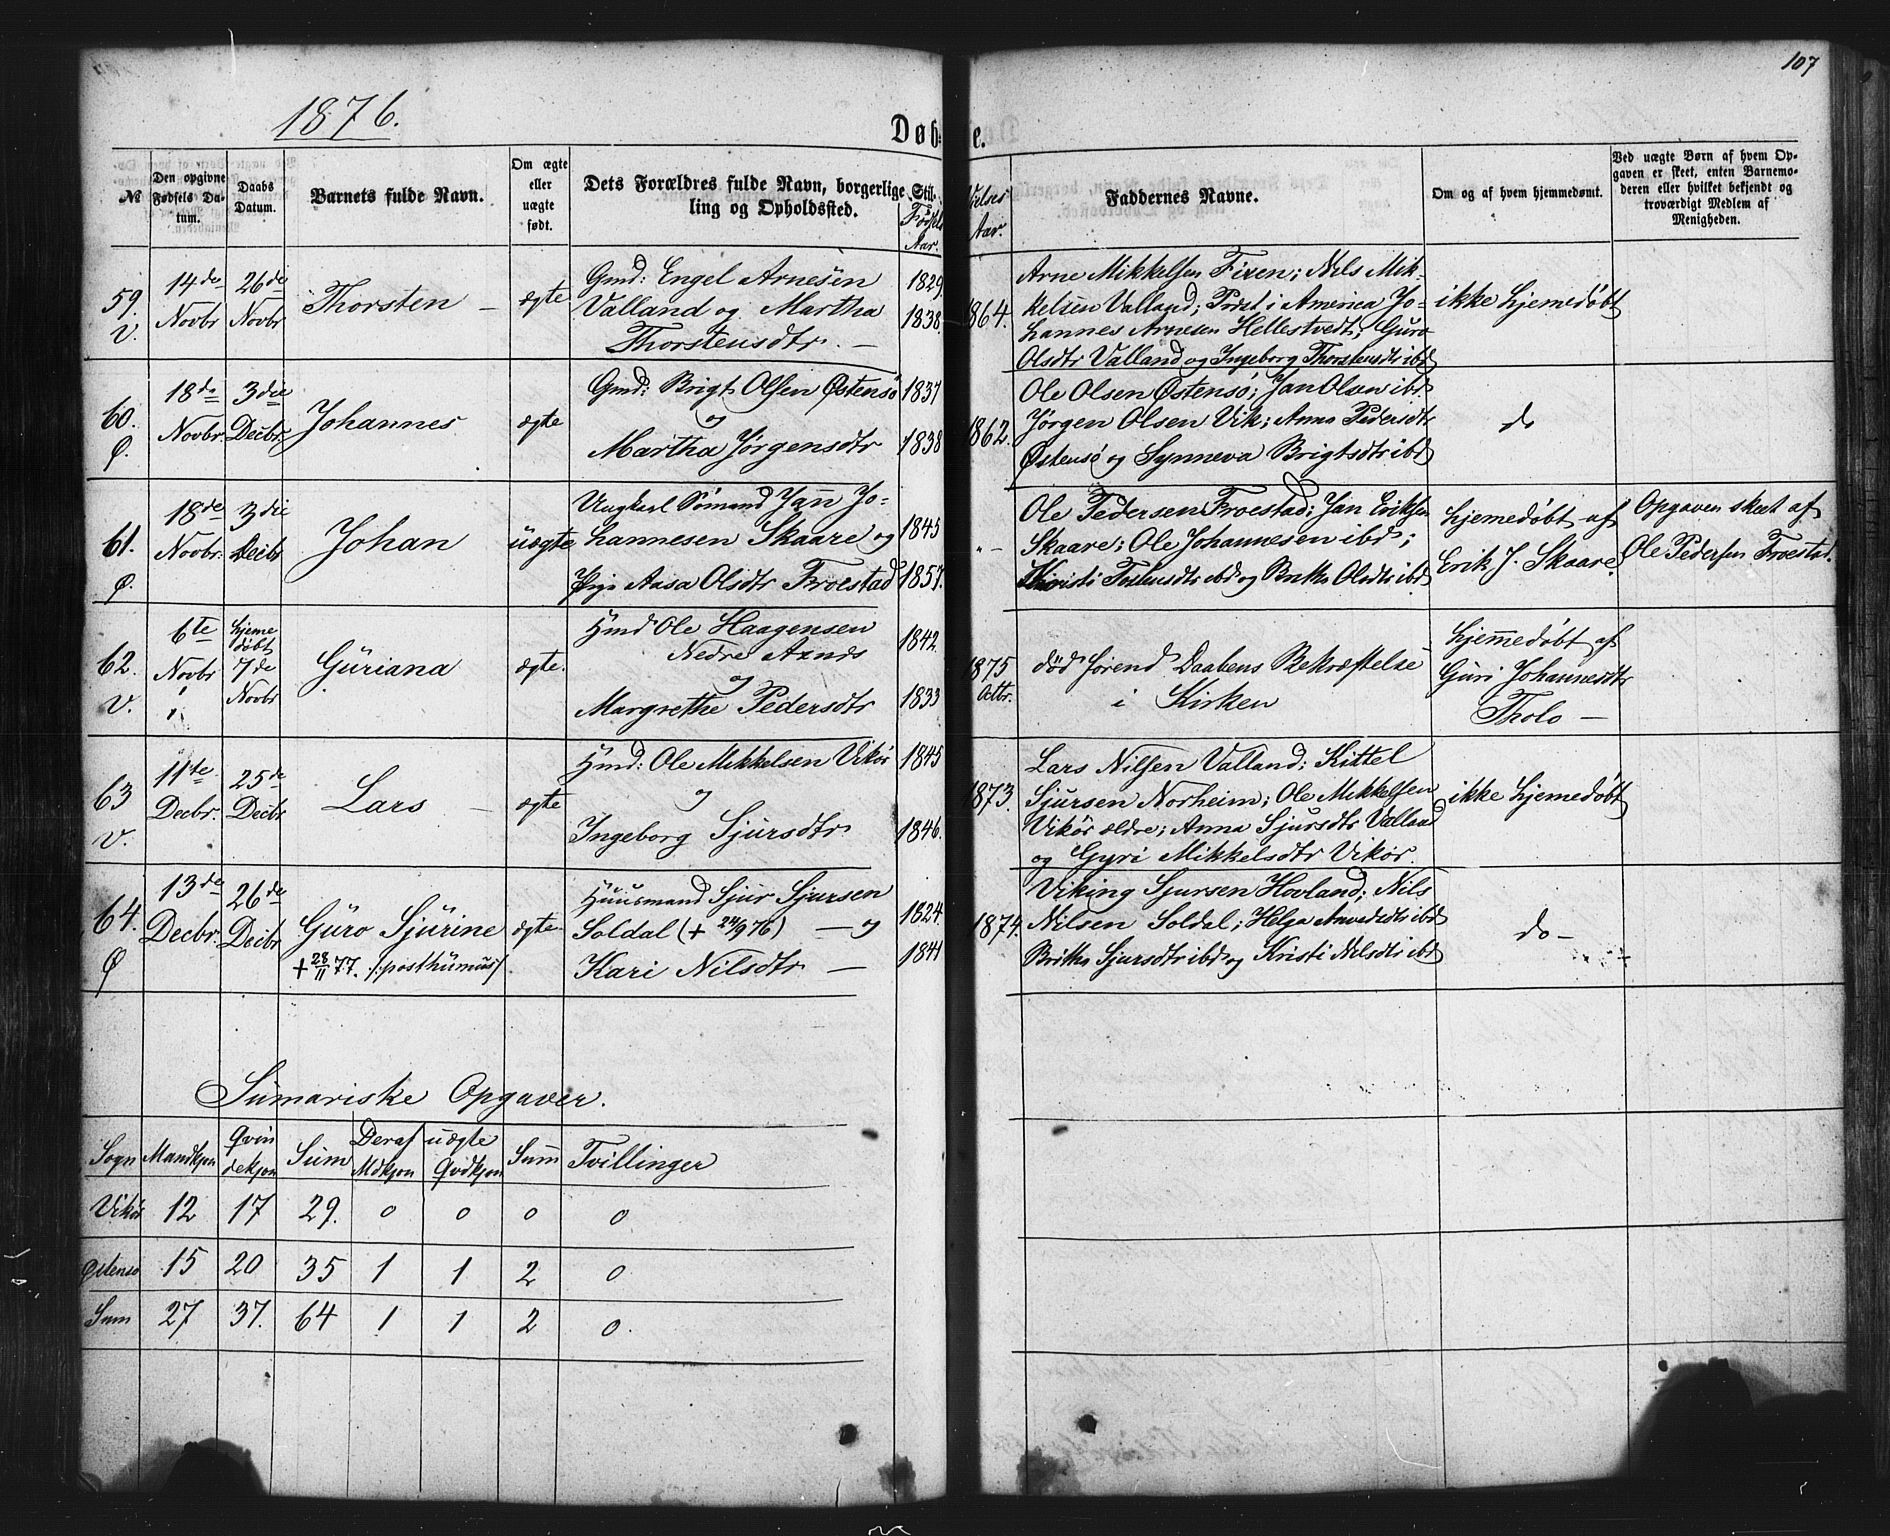 107
1876.
Døb-
te.
№
Den opgivne
Fødsels Da-
tum.
Daabs
Datum.
Barnets fulde Navn.
Om ægte
eller
uægte
født.
Dets Forældres fulde Navn, borgerlige Stil-
ling og Opholdssted.
Fødsels
Aar.
Vielses
Aar.
Faddernes Navne.
Om og af hvem hjemmedømt.
Ved uægte Børn af hvem Op-
gaven er skeet, enten Barnemo-
deren eller hvilket bekjendt og
troværdigt Medlem af
Menigheden.
59.
V.
14de
Novbr
26de
Novbr
Thorsten —
ægte
Gmd: Engel Arnesen
Valland og Martha
Thorstensdtr. —
1829.
1838.
1864.
Arne Mikkelsen Fixen; Nils Mik-
kelsen Valland; Præst i America Jo-
hannes Arnesen Hellestvedt; Guro
Olsdtr Valland og Ingeborg Thorstensdtr ibd
ikke hjemedøbt
60.
Ø.
18de
Novbr.
3die
Decbr.
Johannes
ægte
Gmd: Brigt Olsen Østensø
og
Martha Jørgensdtr
1837
1838
1862.
Ole Olsen Østensø; Jan Olsen ibd
Jørgen Olsen Vik; Anna Pedersdtr
Østensø og Synneva Brigtsdtr ibd
do
61.
Ø.
18de
Novbr.
3die
Decbr
Johan
uægte
Ungkarl Sømand Jan Jo-
hannesen Skaare og
Pige Aasa Olsdtr Froestad
1845
1857.
" –
Ole Pedersen Froestad; Jan Eriksen
Skaare; Ole Johannesen ibd;
Kristi ibd og Britha Olsdtr ibd
hjemedøbt af
Erik J. Skaare.
Opgaven skeet af
Ole Pedersen Froestad.
62.
V.
6te
Novbr
hjeme
døbt
7de
Novbr
Guriana
ægte.
Hmd Ole Haagensen
Nedre Axnes
og
Margrethe Pedersdtr
1842.
1833
1875
Octbr.
død førend Daabens Bekræftelse
i Kirken
hjemmedøbt af
Guri Johannesdtr
Tholo —
63
V.
11te
Decbr.
25de
Decbr
Lars —
ægte
Hmd: Ole Mikkelsen Vikør
og
Ingeborg Sjursdtr
1845
1846.
1873.
Lars Nilsen Valland; Kittel
Sjursen Norheim; Ole Mikkelsen
Vikør ældre; Anna Sjursdtr Valland
og Gyri Mikkelsdtr Vikør.
ikke hjemedøbt
64.
Ø
13de
Decbr.
26de
Decbr
Guro Sjurine
+ 28/11 77. /:posthumus/.
ægte
Huusmand Sjur Sjursen
Soldal (+ 24/9 76) — og
Kari Nilsdtr —
1824.
1841
1874.
Viking Sjursen Hovland; Nils
Nilsen Soldal; Helga ibd
Britha Sjursdtr ibd og Kristi Nilsdtr ibd
do —
Sumariske Opgaver.
Sogn
Mandkjøn
Qvin
dekjøn
Sum
Deraf uægte
Mdkjøn
Qvdkjøn
Sum
Tvillinger
Vikør 12 17 29. 0 0 0 0
Østensø 15 20 35 1 1 2 0
Sum 27 37. 64 1 1 2 0.